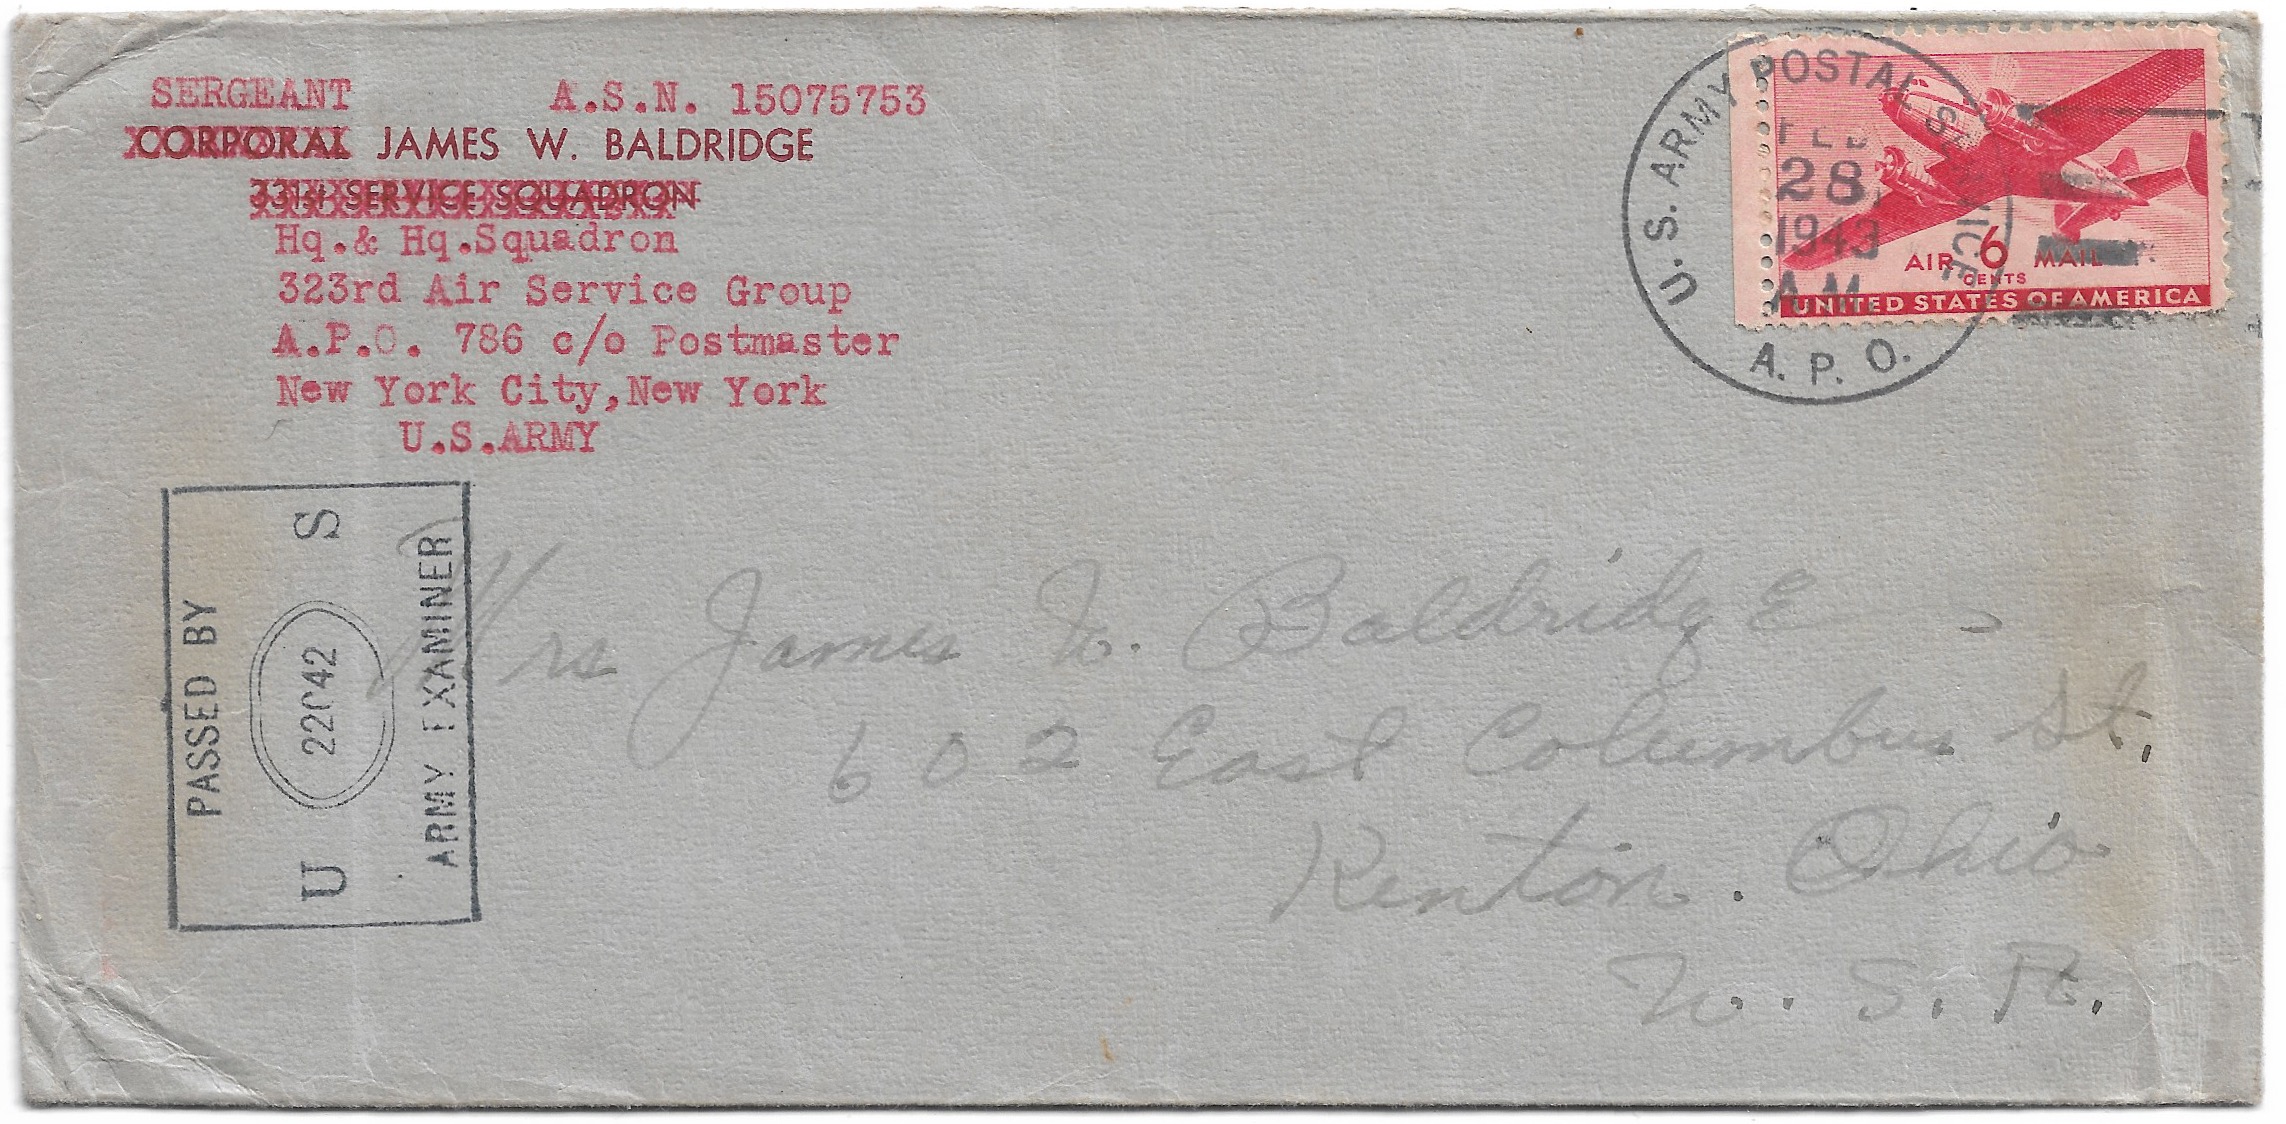 SERGEANT A.S.N. 15075753
CORPORAL JAMES W. BALDRIDGE
331st SERVICE SQUADRON
Hq.& Hq.Squadron
323rd Air Service Group
A.P.O. 786 c/o Postmaster
New York City,New York
U.S.ARMY
U.S. ARMY POSTAL SERVICE
FEB
28
1943
A.M.
A. P. O.
AIR 6 MAIL
CENTS
UNITED STATES OF AMERICA
PASSED BY
U S
ARMY EXAMINER
Mrs James W. Baldridge
602 East Columbus St.
Kenton. Ohio
U. S. A.